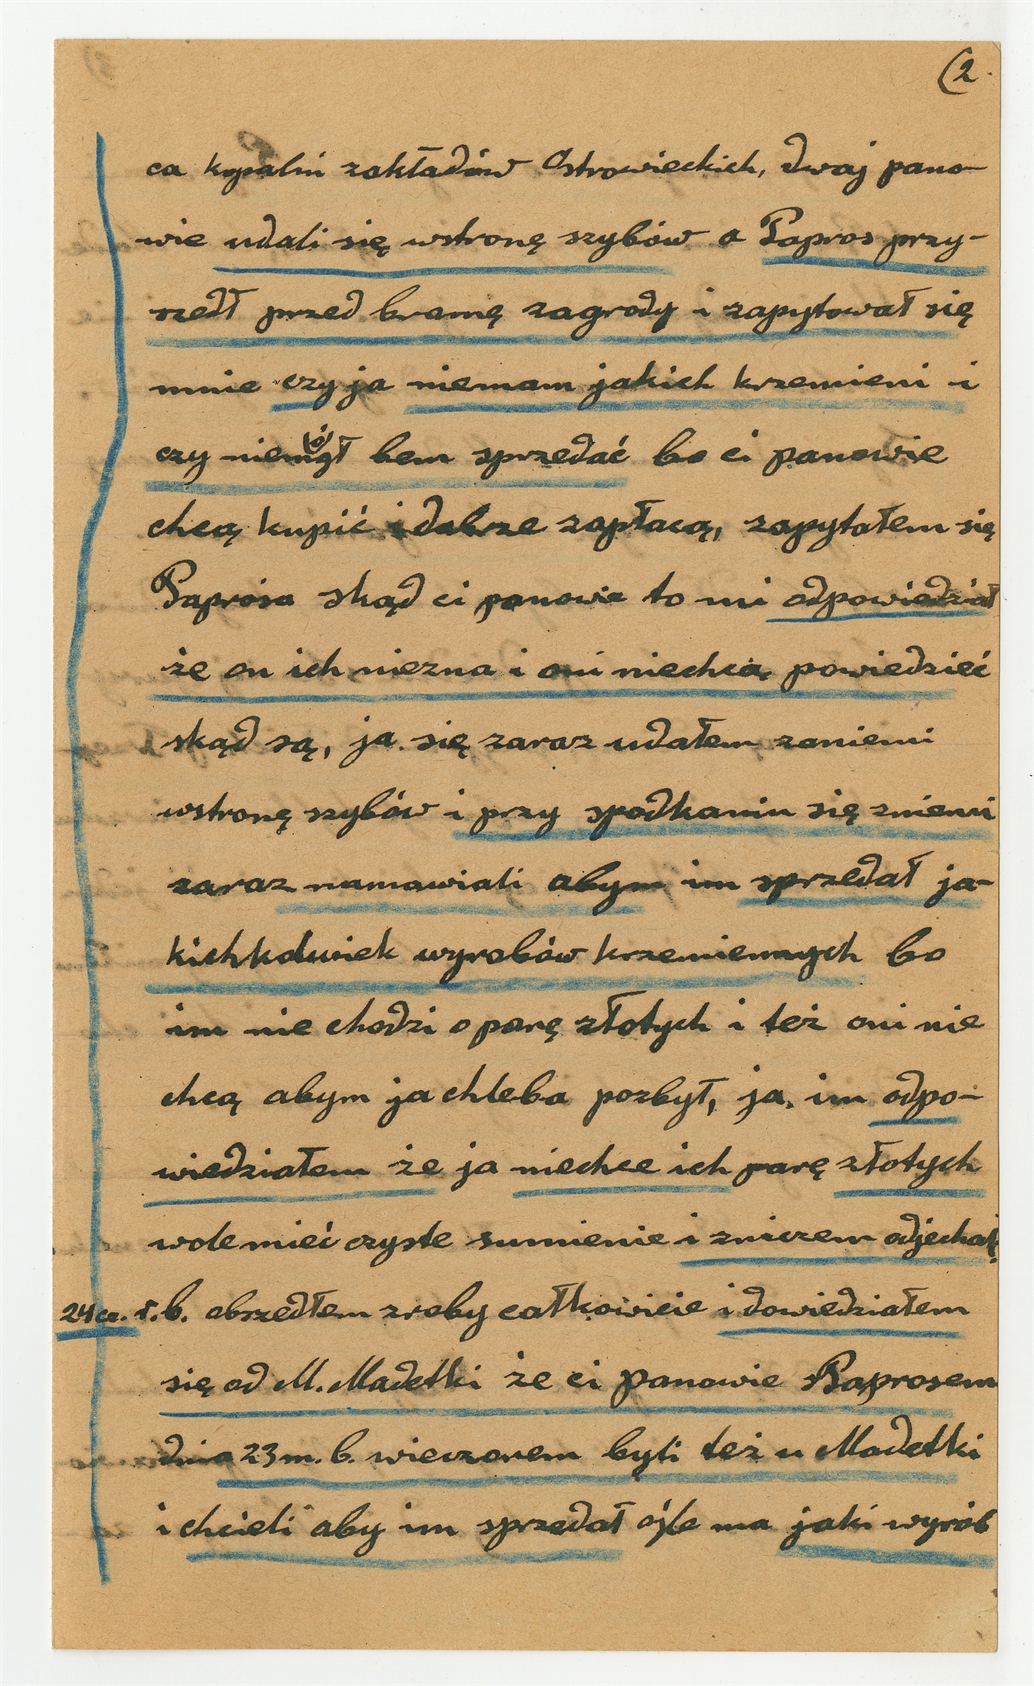 (2.
ca kopalni zakładów Ostrowieckich, dwaj pano-
wie udali się wstronę szybów a Papros przy-
szedł przed bramę zagrody i zapytował się
mnie czy ja niemam jakich krzemieni i
czy niemógł bem sprzedać bo ci panowie
chcą kupić i dobrze zapłacą, zapytałem się
Paprosa skąd ci panowie to mi odpowiedział
że on ich niezna i oni niechcą powiedzieć
skąd są, ja się zaraz udałem zaniemi
wstronę szybów i przy spodkaniu się zniemi
zaraz namawiali abym im sprzedał ja-
kichkolwiek wyrobów krzemiennych bo
im nie chodzi o parę złotych i też oni nie
chcą abym ja chleba pozbył, ja, im odpo-
wiedziałem że ja niechce ich parę złotych
wole mieć czyste sumienie i zniczem odjechali.
24 cz. r.b. obszedłem zroby całkowicie i dowiedziałem
się od M. Madetki że ci panowie Paprosem
dnia 23 m. b. wieczorem byli też u Madetki
i chcieli aby im sprzedał ojle ma jaki wyrób